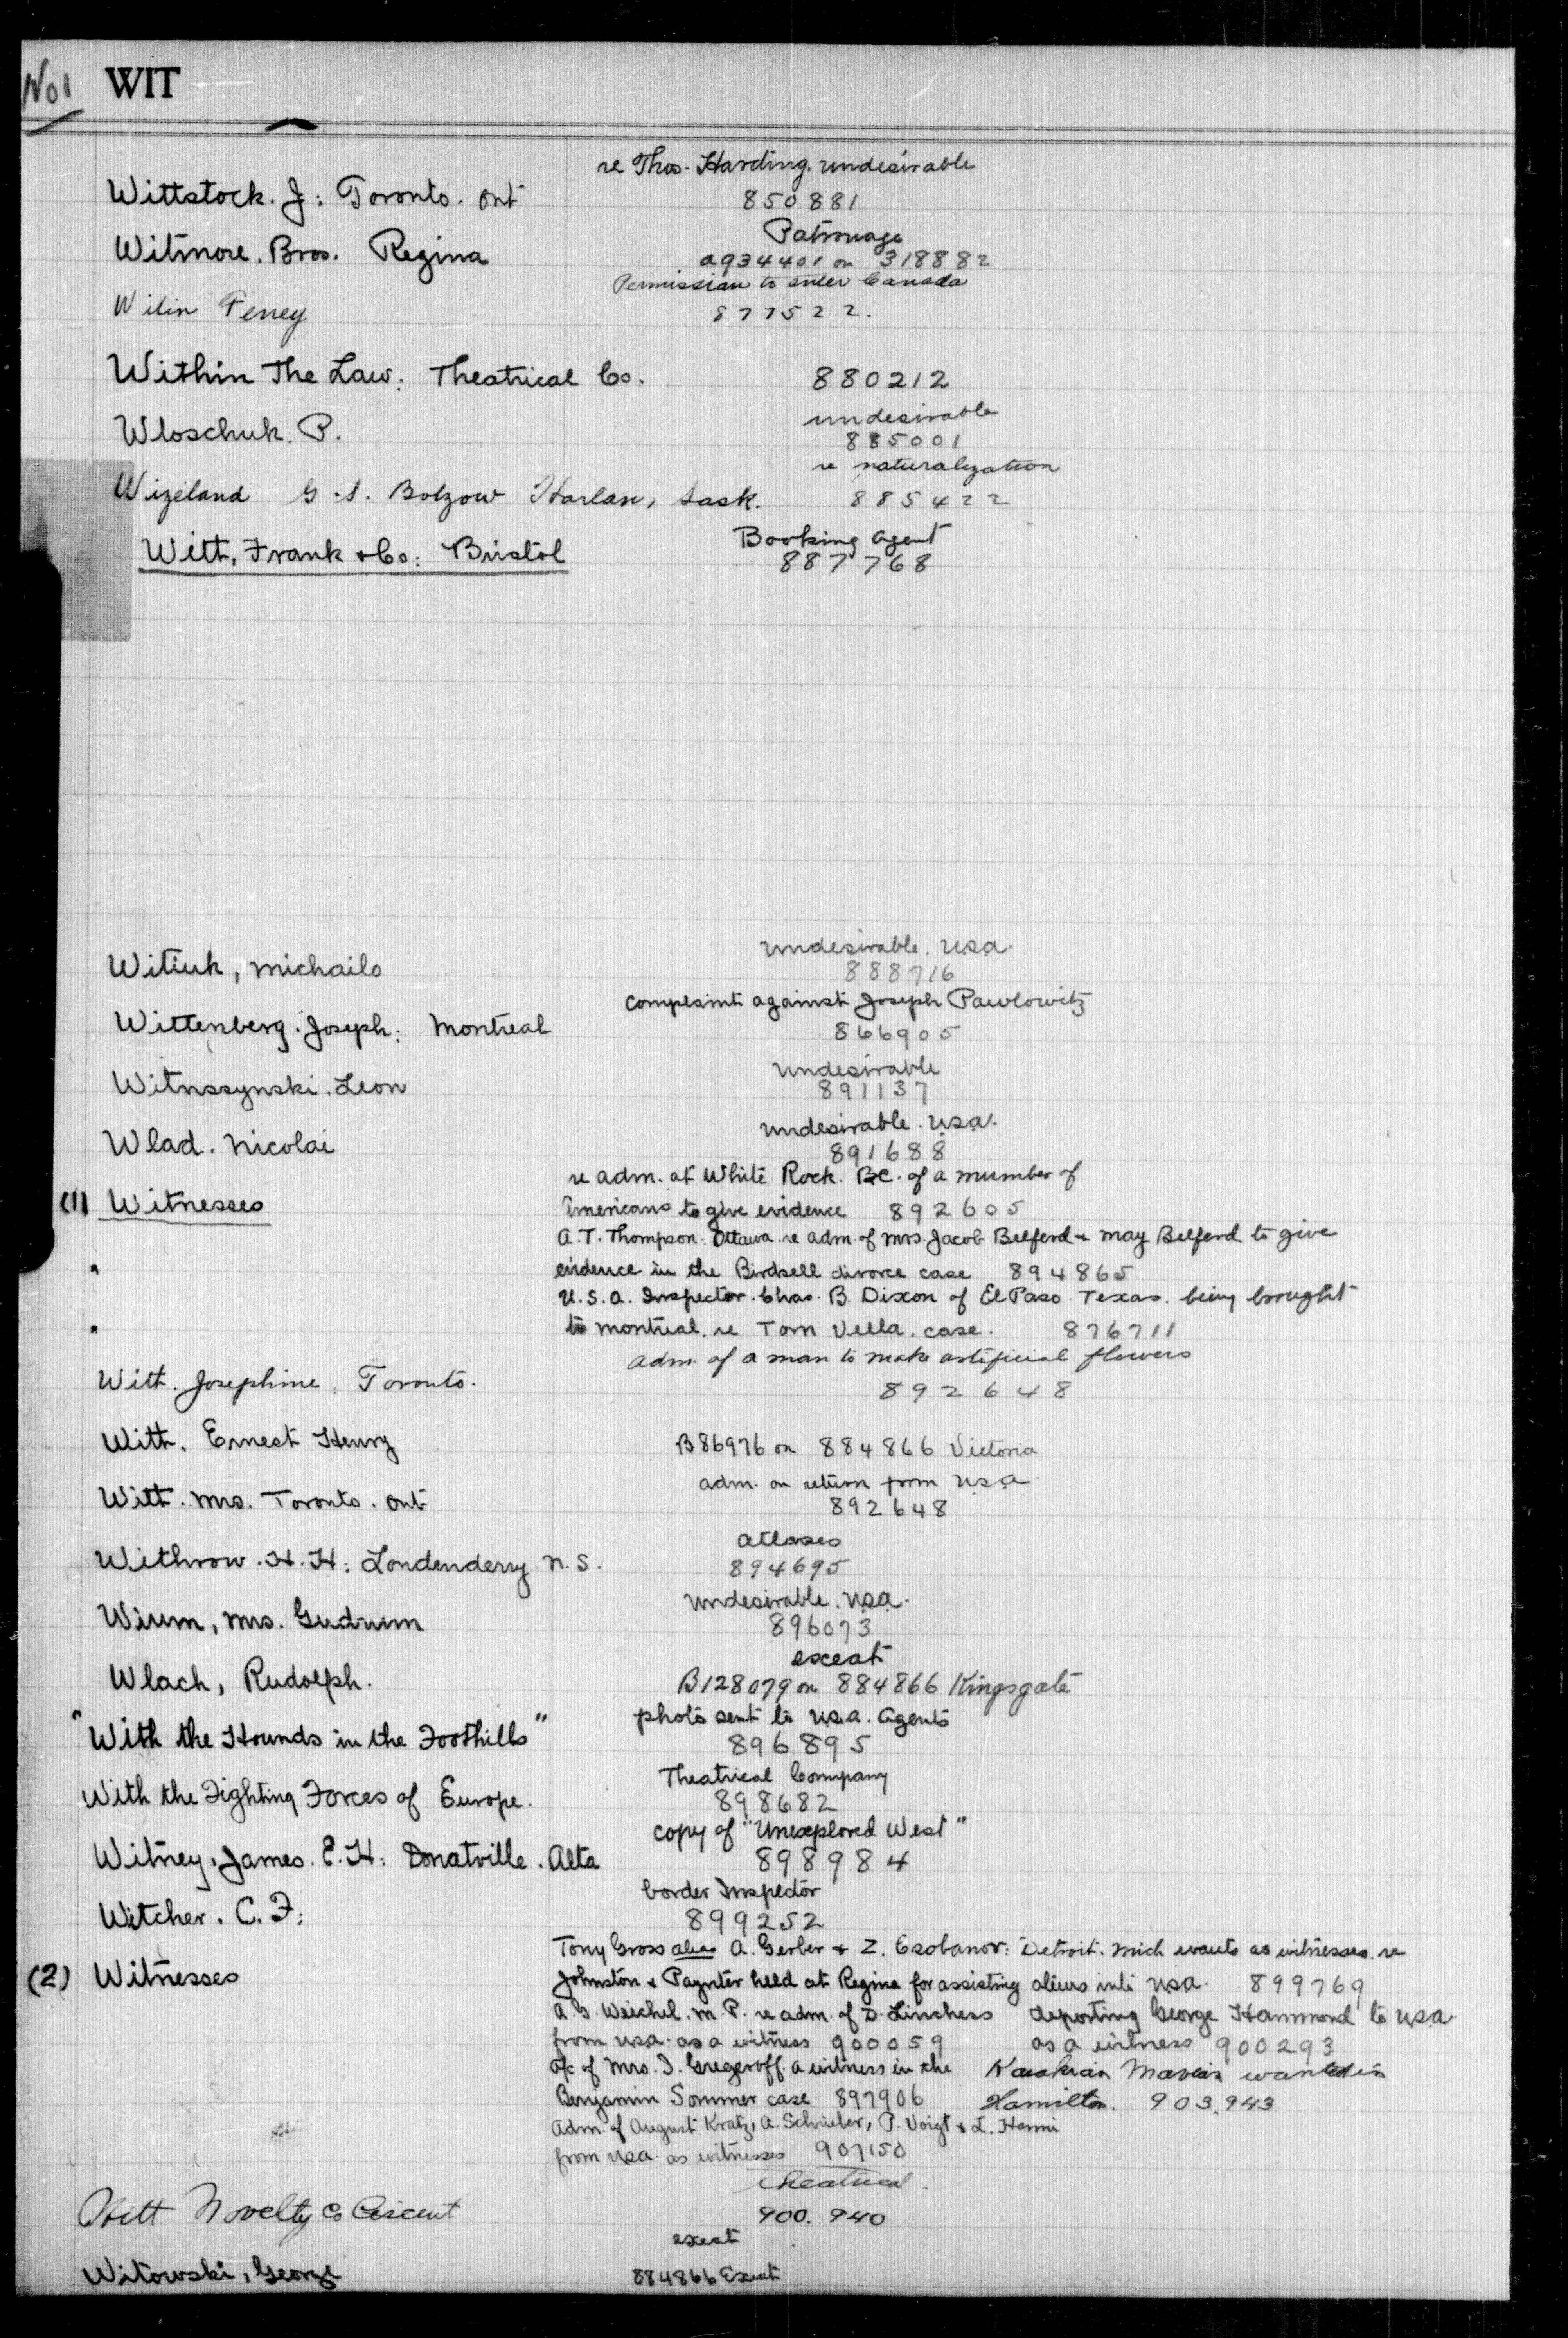 No 1 WIT
re Thos. Harding. undesirable
Wittstock. J: Toronto. Ont 850881
Patronage
Witmore. Bros. Regina a934401 on 318882
Permission to enter Canada
Witin Feney 877522.
Within The Law: Theatrical Co. 880212
undesirable
Wloschuk. P. 885001
re naturalization
Wizeland G. S. Botzow Harlan, Sask. 885422
Booking agent
Witt, Frank & Co: Bristol 887768
undesirable. U.S.A.
Witiuk, Michailo 888716
Complaint against Joseph Pawlowitz
Wittenberg. Joseph: Montreal 866905
undesirable
Witnssynski. Leon 891137
undesirable. U.S.A.
Wlad. Nicolai 891688
re adm. at White Rock. BC. of a number of
(1) Witnesses Americans to give evidence 892605
A. T. Thompson: Ottawa re adm. of Mrs. Jacob Belferd & May Belferd to give
" evidence in the Birdsell divorce case 894865
U.S.A. Inspector. Chas. B. Dixon of El Paso Texas. being brought
" to Montreal. re Tom Vella. case. 876711
adm. of a man to make artificial flowers
Witt. Josephine: Toronto. 892648
Witt. Ernest Henry B86976 on 884866 Victoria
adm. on return from U.S.A.
Witt. Mrs. Toronto. Ont 892648
atlases
Withrow. H. H: Londenderry N.S. 894695
undesirable. U.S.A.
Wium, Mrs. Gudrum 896073
exeat
Wlach, Rudolph. B128079 on 884866 Kingsgate
photo sent to U.S.A. Agents
"With the Hounds in the Foothills" 896895
Theatrical Company
With the Fighting Forces of Europe. 898682
copy of "Unexplored West"
Witney, James. E. H: Donatville. Alta 898984
border Inspector
Witcher. C. F: 899252
Tony Gross alias A. Gerber & Z. Ezobanor: Detroit. Mich wants as witnesses. re
(2) Witnesses Johnston & Paynter held at Regina for assisting aliens into U.S.A. 899769
A. G. Weichel. M.P. re adm. of D. Linchess deporting George Hammond to U.S.A.
from U.S.A. as a witness 900059 as a witness 900293
a/c of Mrs. I. Gregeroff a witness in the wanted in
Benjamin Sommer case 897906 Hamilton. 903,943
Adm. of August Kratz, A. Schrieber, P. Voigt & L. Hanni
from U.S.A. as witnesses 907150
theatrical.
Witt Novelty Co Crescent 900.940
exeat
Witowski, George 884866 Exeat